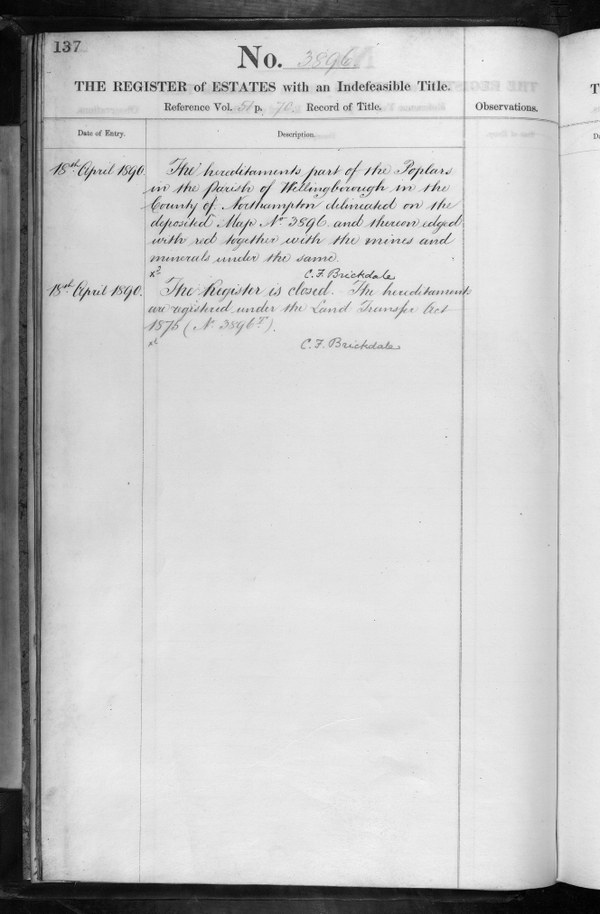 137
No. 3896
THE REGISTER of ESTATES with an Indefeasible Title.
Reference Vol. 51 p. 70. Record of Title.
Observations.
Date of Entry.
Description.
18th April 1890.
The hereditaments part of the Poplars
in the Parish of Wellingborough in the
County of Northampton delineated on the
deposited Map No 3896 and thereon edged
with red together with the mines and
minerals under the same.
C. F. Brickdale
18th April 1890.
The Register is closed. The hereditaments
are registered under the Land Transfer Act
1875 (No 3896T).
C. F. Brickdale